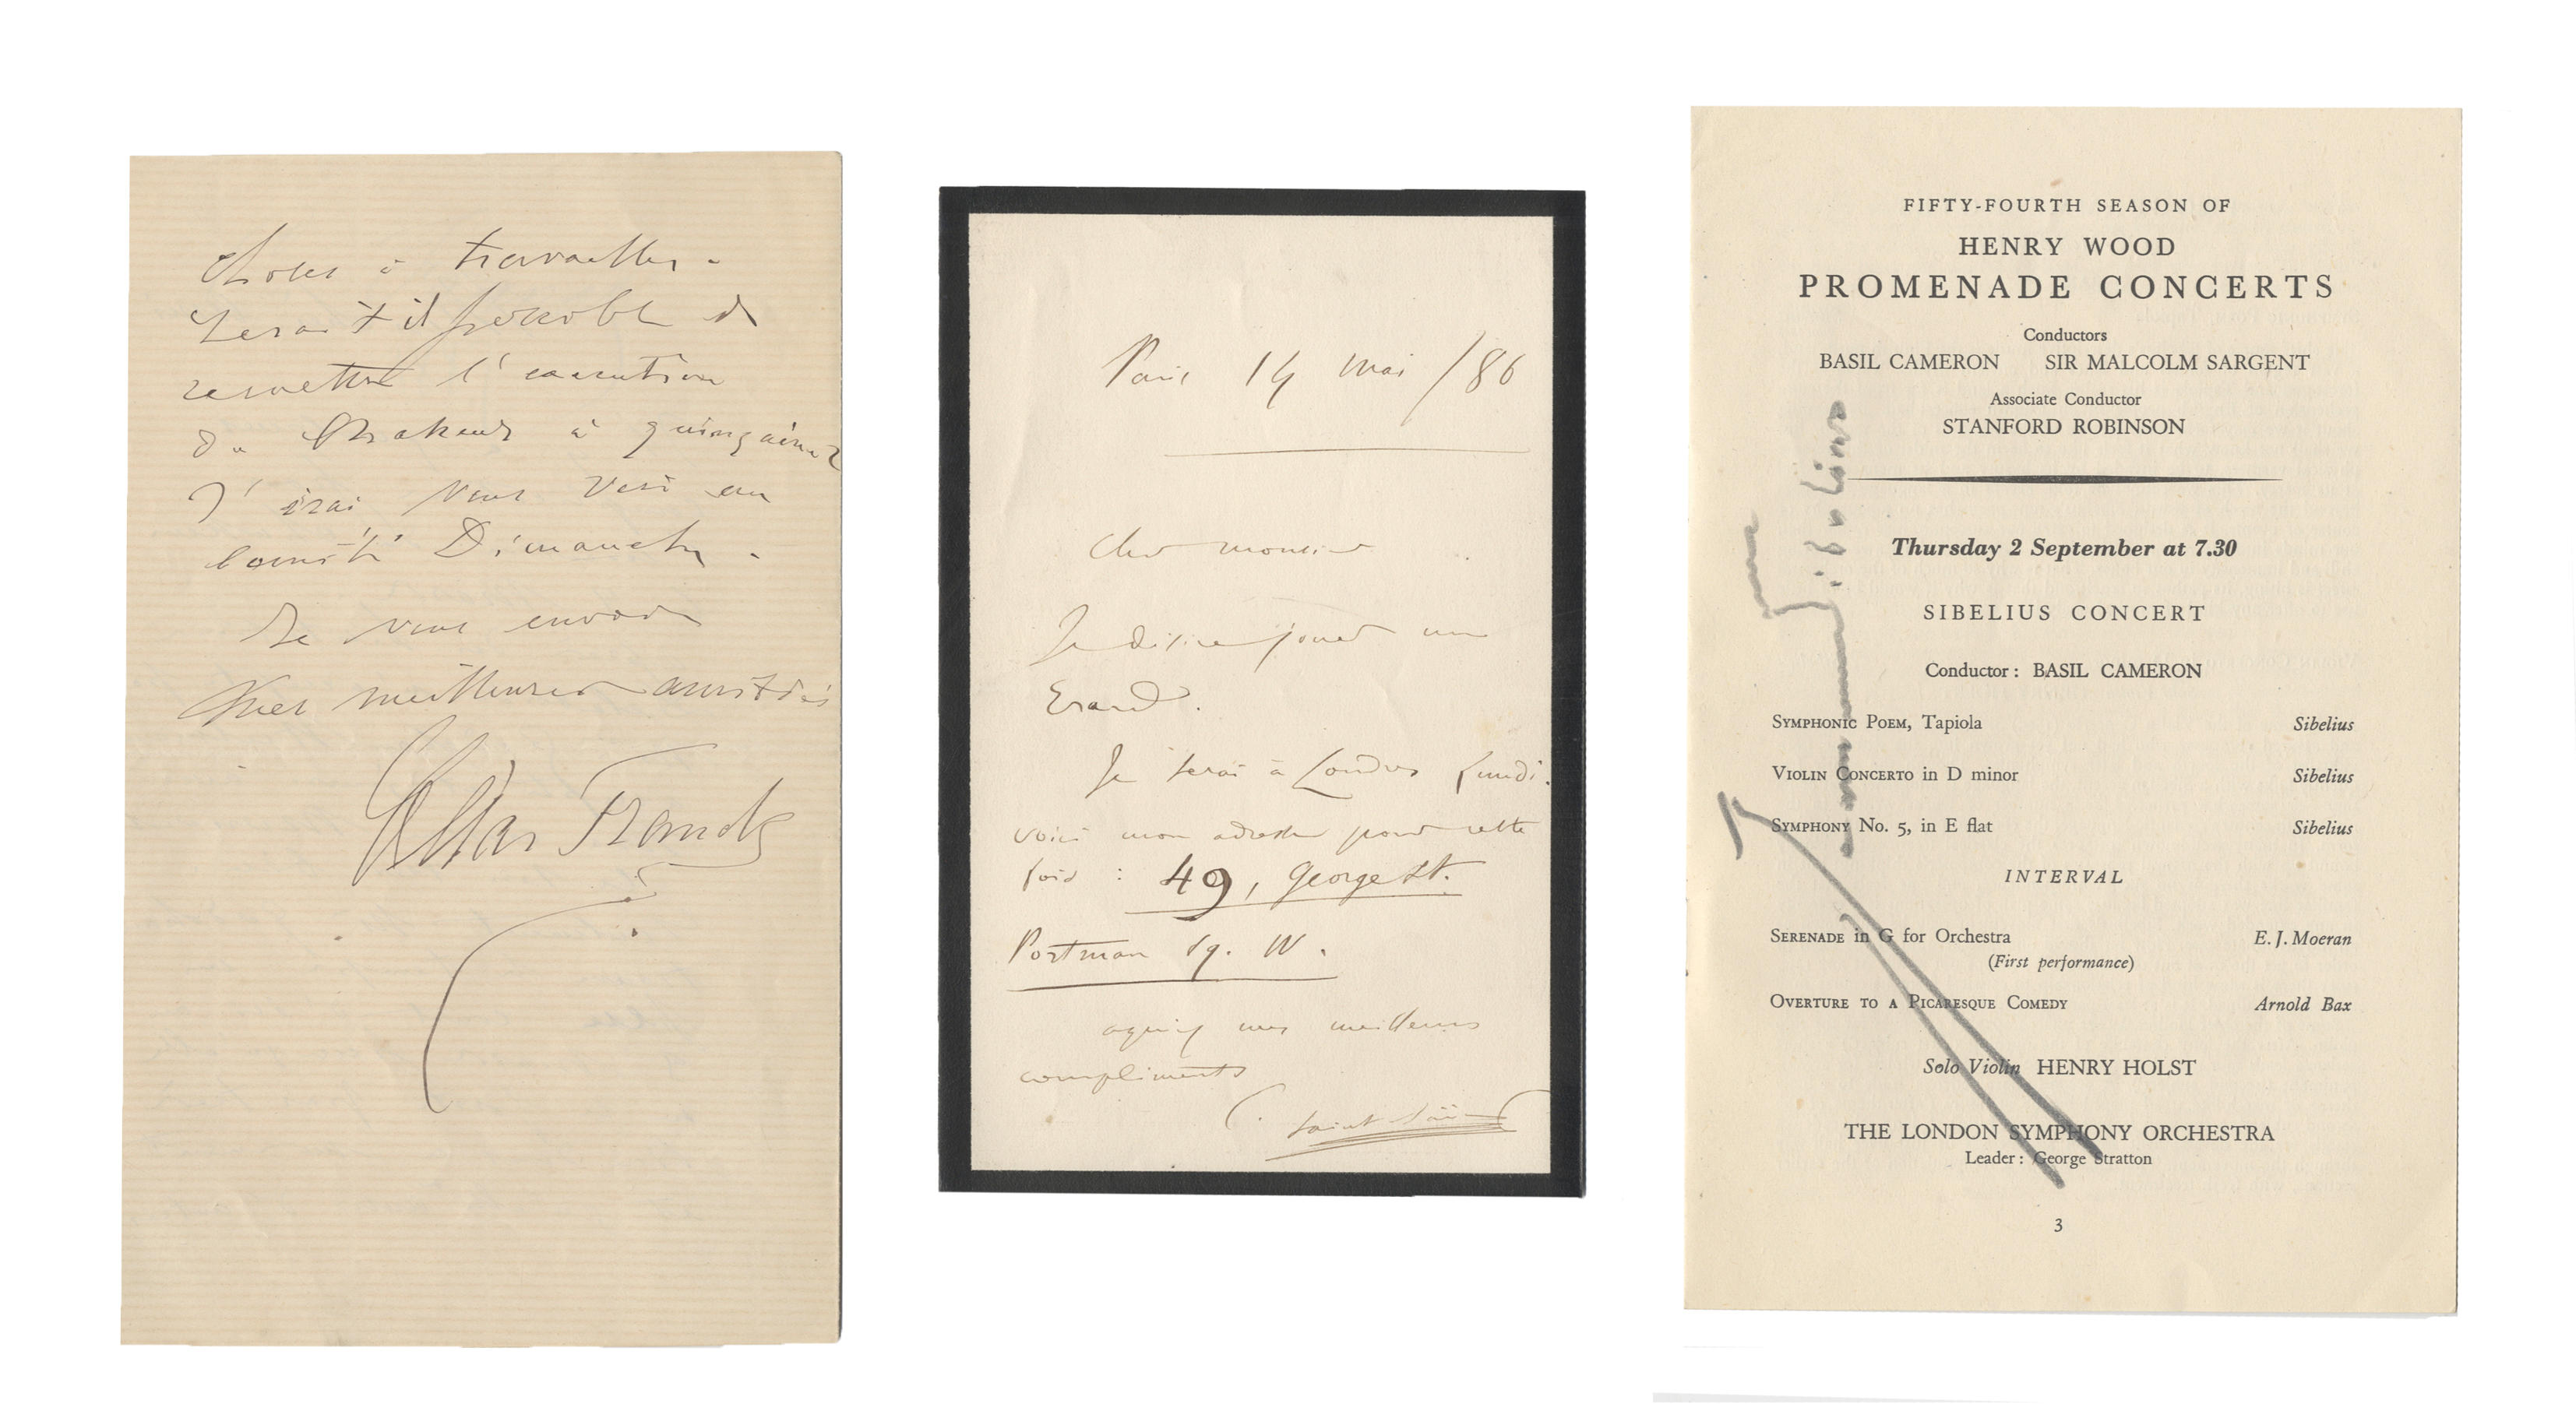 choses à travailler.
Serait il possible de
remettre l'exécution
du à quinzaine
J'irai vous voir au
comité Dimanche.
Je vous envoie
mes meilleures amitiés
César Franck
Paris 14 mai /86
Cher monsieur
Je désire jouer un
Erard.
Je serai à Londres Lundi.
voici mon adresse pour cette
fois : 49, George St.
Portman Sq. W.
agréez mes meilleurs
compliments
C. Saint-Saëns
FIFTY-FOURTH SEASON OF
HENRY WOOD
PROMENADE CONCERTS
Conductors
BASIL CAMERON SIR MALCOLM SARGENT
Associate Conductor
STANFORD ROBINSON
Thursday 2 September at 7.30
SIBELIUS CONCERT
Conductor: BASIL CAMERON
SYMPHONIC POEM, Tapiola Sibelius
VIOLIN CONCERTO in D minor Sibelius
SYMPHONY No. 5, in E flat Sibelius
INTERVAL
SERENADE in G for Orchestra E. J. Moeran
(First performance)
OVERTURE TO A PICARESQUE COMEDY Arnold Bax
Solo Violin HENRY HOLST
THE LONDON SYMPHONY ORCHESTRA
Leader: George Stratton
3
Jean Sibelius